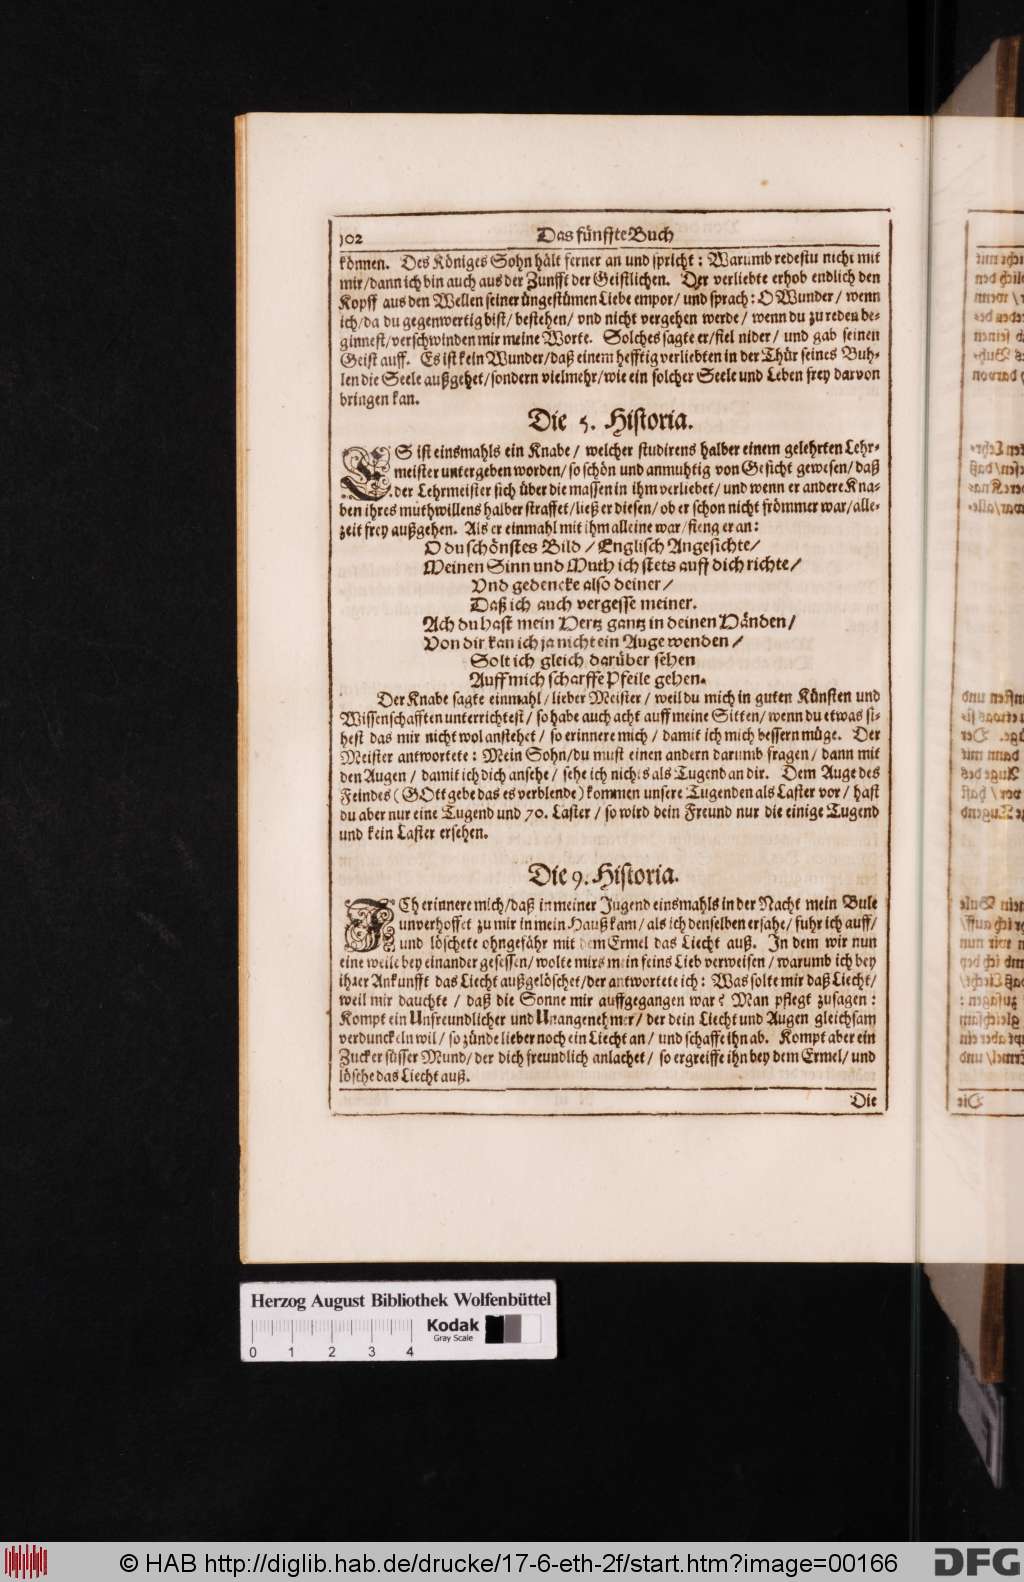 102 Das fünffte Buch
können. Des Königes Sohn hält ferner an und spricht: Warumb redestu nicht mit
mir/dann ich bin auch aus der Zunfft der Geistlichen. Der verliebte erhob endlich den
Kopff aus den Wellen seiner üngestümen Liebe empor/ und sprach: O Wunder/ wenn
ich/da du gegenwertig bist/ bestehen/ vnd nicht vergehen werde/ wenn du zu reden be-
ginnest/verschwinden mir meine Worte. Solches sagte er/fiel nider/ und gab seinen
Geist auff. Es ist kein Wunder/daß einem hefftig verliebten in der Thür seines Buh-
len die Seele außgehet/sondern vielmehr/wie ein solcher Seele und Leben frey darvon
bringen kan.
Die 5. Historia.
ES ist einsmahls ein Knabe/ welcher studirens halber einem gelehrten Lehr-
meister untergeben worden/so schön und anmuhtig von Gesicht gewesen/daß
der Lehrmeister sich über die massen in ihm verliebet/und wenn er andere Kna-
ben ihres muthwillens halber straffet/ließ er diesen/ob er schon nicht frömmer war/alle-
zeit frey außgehen. Als er einmahl mit ihm alleine war/fieng er an:
O du schönstes Bild/Englisch Angesichte/
Meinen Sinn und Muth ich stets auff dich richte/
Vnd gedencke also deiner/
Daß ich auch vergesse meiner.
Ach du hast mein Hertz gantz in deinen Händen/
Von dir kan ich ja nicht ein Auge wenden/
Solt ich gleich darüber sehen
Auff mich scharffe Pfeile gehen.
Der Knabe sagte einmahl/lieber Meister/ weil du mich in guten Künsten und
Wissenschafften unterrichtest/ so habe auch acht auff meine Sitten/wenn du etwas si-
hest das mir nicht wol anstehet/ so erinnere mich/ damit ich mich bessern müge. Der
Meister antwortete: Mein Sohn/du must einen andern darumb fragen/ dann mit
den Augen/ damit ich dich ansehe/ sehe ich nichts als Tugend an dir. Dem Auge des
Feindes (GOtt gebe das es verblende) kommen unsere Tugenden als Laster vor/ hast
du aber nur eine Tugend und 70. Laster/ so wird dein Freund nur die einige Tugend
und kein Laster ersehen.
Die 9. Historia.
ICh erinnere mich/daß in meiner Jugend einsmahls in der Nacht mein Bule
unverhoffet zu mir in mein Hauß kam/als ich denselben ersahe/fuhr ich auff/
und löschete ohngefähr mit dem Ermel das Liecht auß. In dem wir nun
eine weile bey einander gesessen/wolte mirs mein feins Lieb verweisen/warumb ich bey
ihrer Ankunfft das Liecht außgelöschet/der antwortete ich: Was solte mir daß Liecht/
weil mir dauchte/ daß die Sonne mir auffgegangen war? Man pflegt zusagen:
Kompt ein Unfreundlicher und Unangenehmer/ der dein Liecht und Augen gleichsam
verdunckeln wil/ so zünde lieber noch ein Liecht an/ und schaffe ihn ab. Kompt aber ein
Zucker süsser Mund/der dich freundlich anlachet/ so ergreiffe ihn bey dem Ermel/ und
lösche das Liecht auß.
Die
Herzog August Bibliothek Wolfenbüttel
Kodak
Gray Scale
0 1 2 3 4
© HAB http://diglib.hab.de/drucke/17-6-eth-2f/start.htm?image=00166
DFG